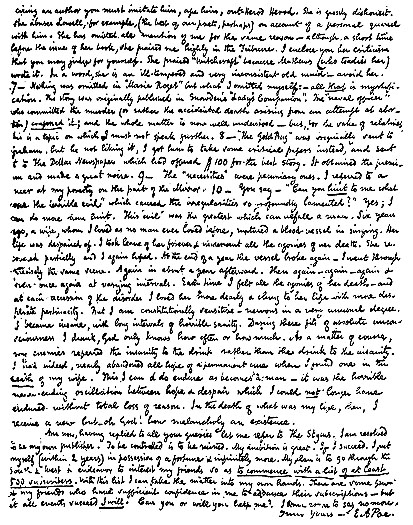 oring an author you must imitate him, ape him, out-Herod Herod. She is grossly dishonest.
She abuses Lowell, for example, (the best of our poets, perhaps) on account of a personal quarrel
with him. She has omitted all mention of me for the same reason — although a short time
before the issue of her book, she praised me highly in the Tribune. I enclose you her criticism
that you may judge for yourself. She praised "Witchcraft" because Mathews (who toadies her)
wrote it. In a word, she is an ill-tempered and very inconsistent old maid — avoid her.
7 — Nothing was omitted in "Marie Roget" but what I omitted myself: — all that is mystifi-
cation. The story was originally published in Snowden's "Lady's Companion". The "naval officer"
who committed the murder (or rather the accidental death arising from an attempt at abor-
tion) confessed it; and the whole matter is now well understood — but, for the sake of relatives,
this is a topic on which I must not speak further. 8 — "The Gold Bug" was originally sent to
Graham, but he not liking it, I got him to take some critical papers instead, and sent
it to The Dollar Newspaper which had offered $100 for the best story. It obtained the premi-
um and made a great noise. 9 — The "necessities" were pecuniary ones. I referred to a
sneer at my poverty on the part of the Mirror. 10 — You say — "Can you hint to me what
was the terrible evil" which caused the irregularities so profoundly lamented?" Yes; I
can do more than hint. This "evil" was the greatest which can befall a man. Six years
ago, a wife, whom I loved as no man ever loved before, ruptured a blood-vessel in singing. Her
life was despaired of. I took leave of her forever & underwent all the agonies of her death. She re-
covered partially and I again hoped. At the end of a year the vessel broke again — I went through
precisely the same scene. Again in about a year afterward. Then again — again — again &
even once again at varying intervals. Each time I felt all the agonies of her death — and
at each accession of the disorder I loved her more dearly & clung to her life with more des-
perate pertinacity. But I am constitutionally sensitive — nervous in a very unusual degree.
I became insane, with long intervals of horrible sanity. During these fits of absolute uncon-
sciousness I drank, God only knows how often or how much. As a matter of course,
my enemies referred the insanity to the drink rather than the drink to the insanity.
I had indeed, nearly abandoned all hope of a permanent cure when I found one in the
death of my wife. This I can & do endure as becomes a man — it was the horrible
never-ending oscillation between hope & despair which I could not longer have
endured without total loss of reason. In the death of what was my life, then, I
receive a new but — oh God! how melancholy an existence.
And now, having replied to all your queries let me refer to The Stylus. I am resolved
to be my own publisher. To be controlled is to be ruined. My ambition is great. If I succeed, I put
myself (within 2 years) in possession of a fortune & infinitely more. My plan is to go through the
South & West & endeavor to interest my friends so as to commence with a list of at least
500 subscribers. With this list I can take the matter into my own hands. There are some few
of my friends who have sufficient confidence in me to advance their subscriptions — but
at all events succeed I will. Can you or will you help me? I have room to say no more.
Truly Yours — E A Poe.